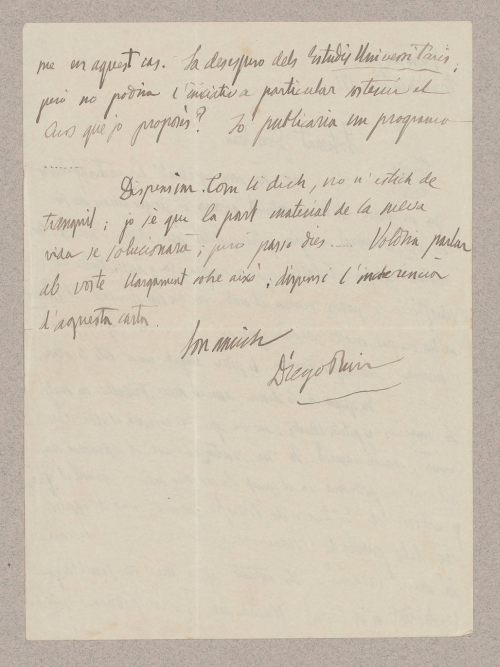 me en aquest cas. Sa desespero dels Estudis Universitaris;
però no podria l'iniciativa particular sostenir el
curs que jo proposés? Jo publicaria un programa
.......
Dispensim. Com li dich, no n'estich de
tranquil; jo sé que la part material de la meva
vida se solucionarà; però passo dies.... Voldria parlar
ab vostè llargament sobre això; dispensi l'incoherencia
d'aquesta carta.
Son amich
Diego Ruiz